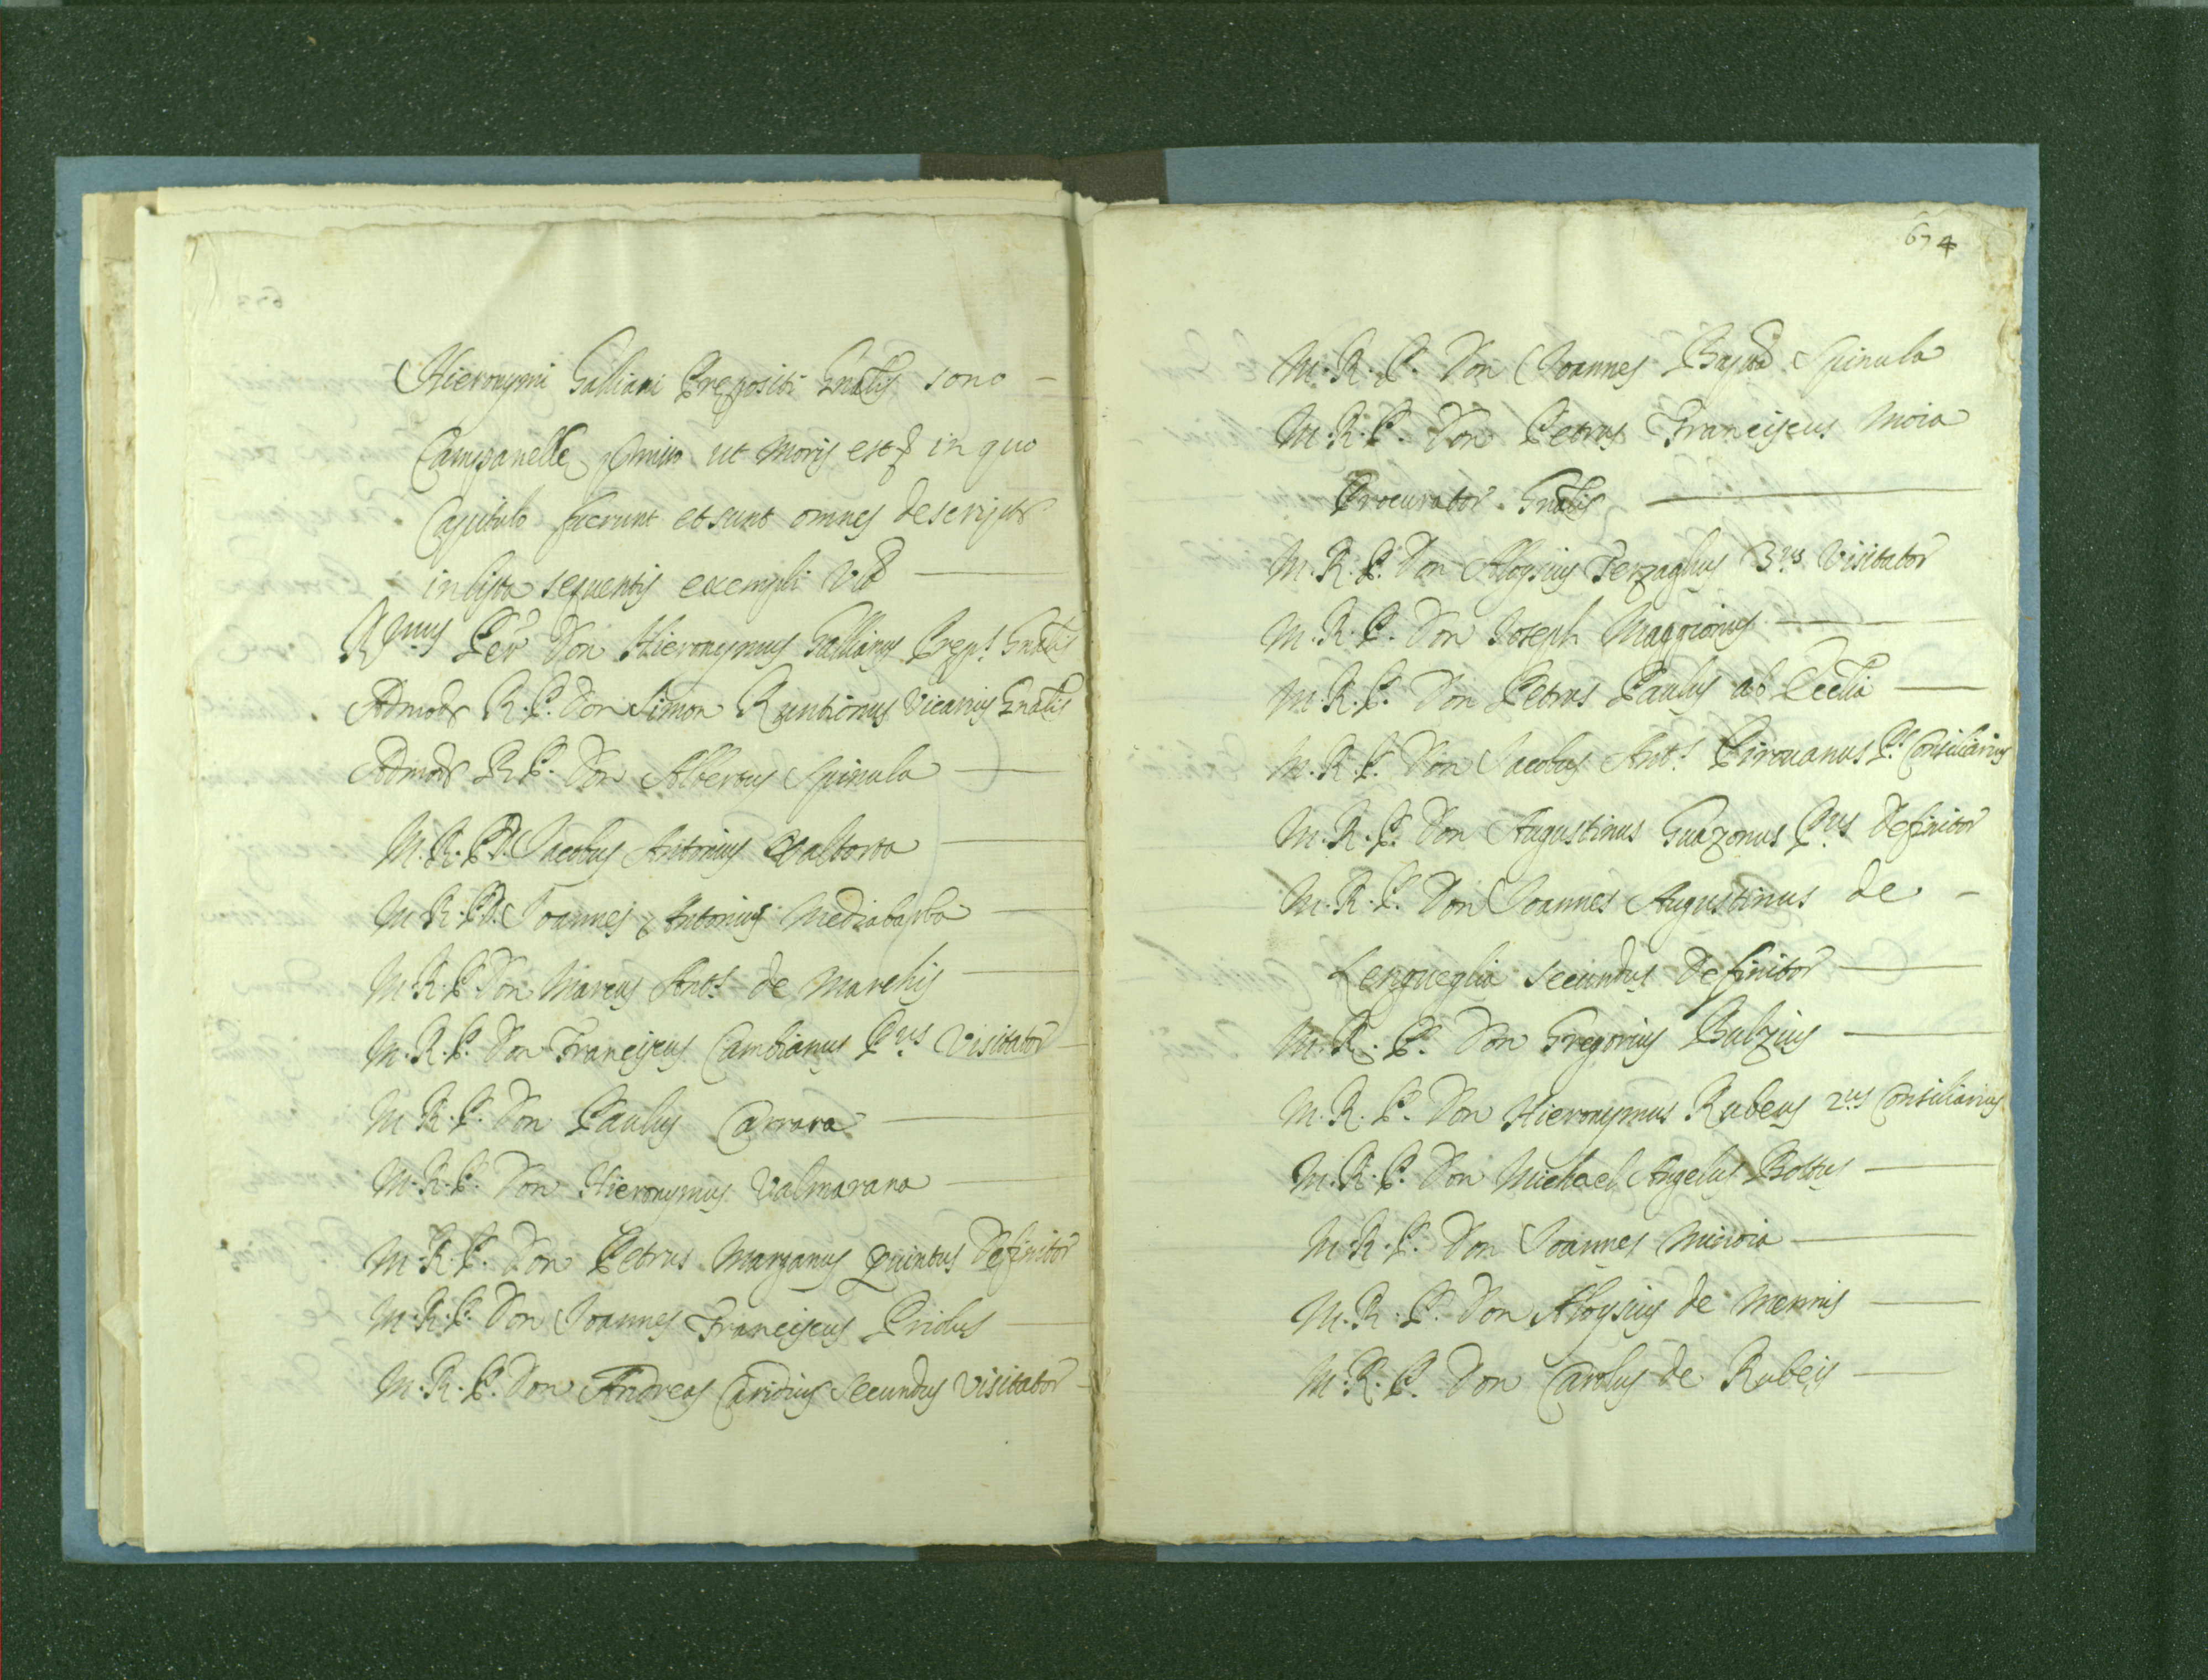 Hieronymi Galliani Prepositi Gnalis sono -
Campanelle premisso ut moris est & in quo
Capitulo fuerunt et sunt omnes descripti
in lista sequentis exempli Vid.
Rmus Per Don Hieronymus Gallianus Prep.s Gnalis
Admod R. P. Don Simon Runtionus Vicarius Gnalis
Admod R. P. Don Albertus Spinula
M. R. P. D. Jacobus Antonius Valtorta
M. R. P. D. Joannes Antonius Mediabarba
M. R. P. Don Marcus Ant.s de Marchis
M. R. P. Don Franciscus Cambianus P.us Visitator
M. R. P. Don Paulus Carrara
M. R. P. Don Hieronymus Valmarana
M. R. P. Don Petrus Marzanus Quintus Definitor
M. R. P. Don Joannes Franciscus Priolus
M. R. P. Don Andreas Caridius Secundus Visitator
674
M. R. P. Don Joannes Bapta Spinula
M. R. P. Don Petrus Franciscus Moia
Procurator Gnalis
M. R. P. Don Aloysius Terzaghus 3.us Visitator
M. R. P. Don Joseph Maggionus
M. R. P. Don Petrus Paulus ab Ecclia
M. R. P. Don Jacobus Ant.s Pirouanus P.s Consiliarius
M. R. P. Don Augustinus Guazonus P.us Definitor
M. R. P. Don Joannes Augustinus de -
Lengueglia secundus Definitor
M. R. P. Don Gregorius Bulzius
M. R. P. Don Hieronymus Rubeus 2.us Consiliarius
M. R. P. Don Michael Angelus Bottus
M. R. P. Don Joannes
M. R. P. Don Aloysius de
M. R. P. Don Carolus de Rubeis